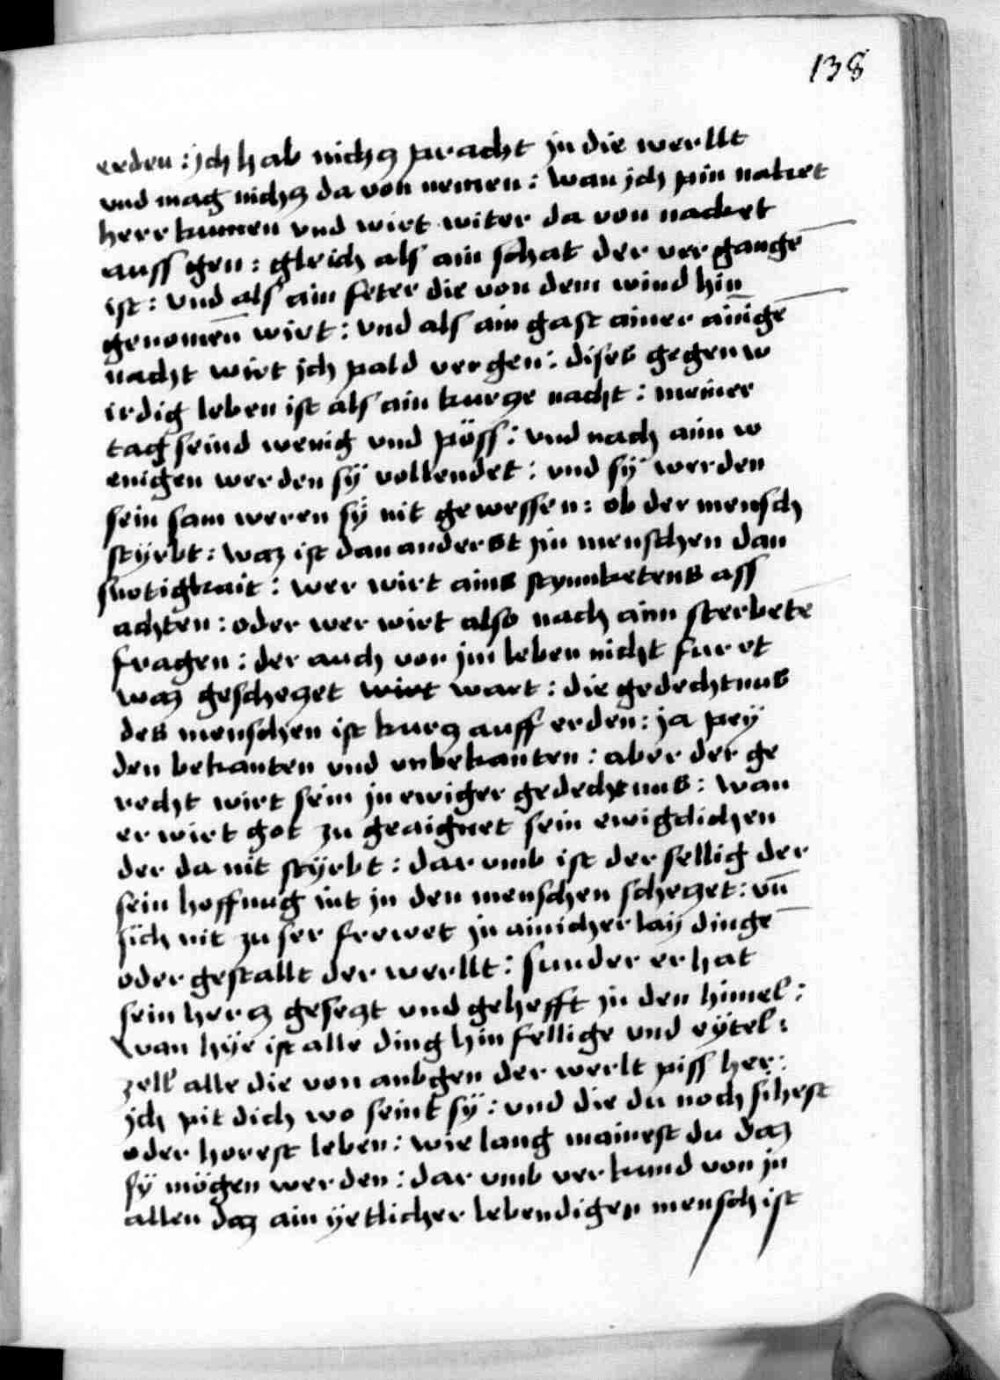 138
erden : jch hab nichcz pracht jn die werllt
vnd mag nichcz da von nemen : wan jch pin naket
herr kumen vnd wirt witer da von nacket
auss gen : gleich als ain schat der ver gangē
ist : vnd als ain feter die von dem wind hin
genomen̄ wirt : vnd als ain gast ainer ainigē
nacht wirt jch pald vergen : dises gegenw
irdig leben ist als ain kurcze nacht : meiner
tag seind wenig vnd pöss : vnd nach aim w
enigen werden sÿ vollendet : vnd sÿ werden
sein sam weren sÿ nit gewessen : ob der mensch
stÿrbt : waz ist dan anderst jm menschen dan
snotigkait : wer wirt ains stynnketens ass
achten : oder wer wirt also nach aim sterbetē
fragen : der auch von jm leben nicht fur et
waz gescheczet wirt wart : die gedechtnus
des menschen ist kurcz auff erden : ja peÿ
den bekanten vnd vnbekanten : aber der ge
recht wirt sein jn ewiger gedechtnus : wan
er wirt got zu geaignet sein ewigclichen
der da nit stÿrbt : dar vmb ist der sellig der
sein hoffnug nit jn den menschen scheczet : vn̄
sich nit zu ser frewet jn ainicherlaÿ dingē
oder gestallt der werllt : sunder er hat
sein hercz geseczt vnd gehefft jn den himel :
wan hÿe ist alle ding hin fellige vnd eÿtel :
zell alle die von anbgen der werlt piss her :
jch pit dich wo seint sÿ : vnd die du noch sihest
oder horest leben : wie lang mainest du daz
sÿ mögen werden : dar vmb ver kund von jn
allen daz ain ÿetlicher lebendigen mensch ist